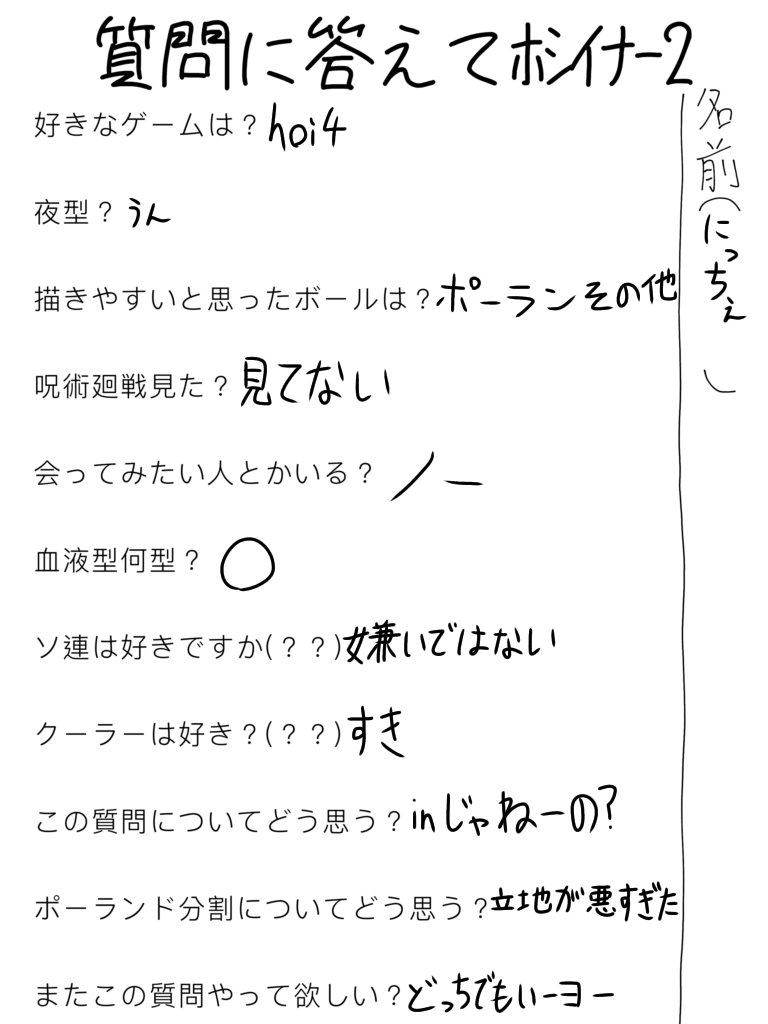 質問に答えてホシイナー2
名前(にっちぇ)
好きなゲームは？hoi4
夜型？うん
描きやすいと思ったボールは？ポーランその他
呪術廻戦見た？見てない
会ってみたい人とかいる？ノー
血液型何型？○
ソ連は好きですか(？？)嫌いではない
クーラーは好き？(？？)すき
この質問についてどう思う？inじゃねーの?
ポーランド分割についてどう思う？立地が悪すぎた
またこの質問やって欲しい？どっちでもいーヨー